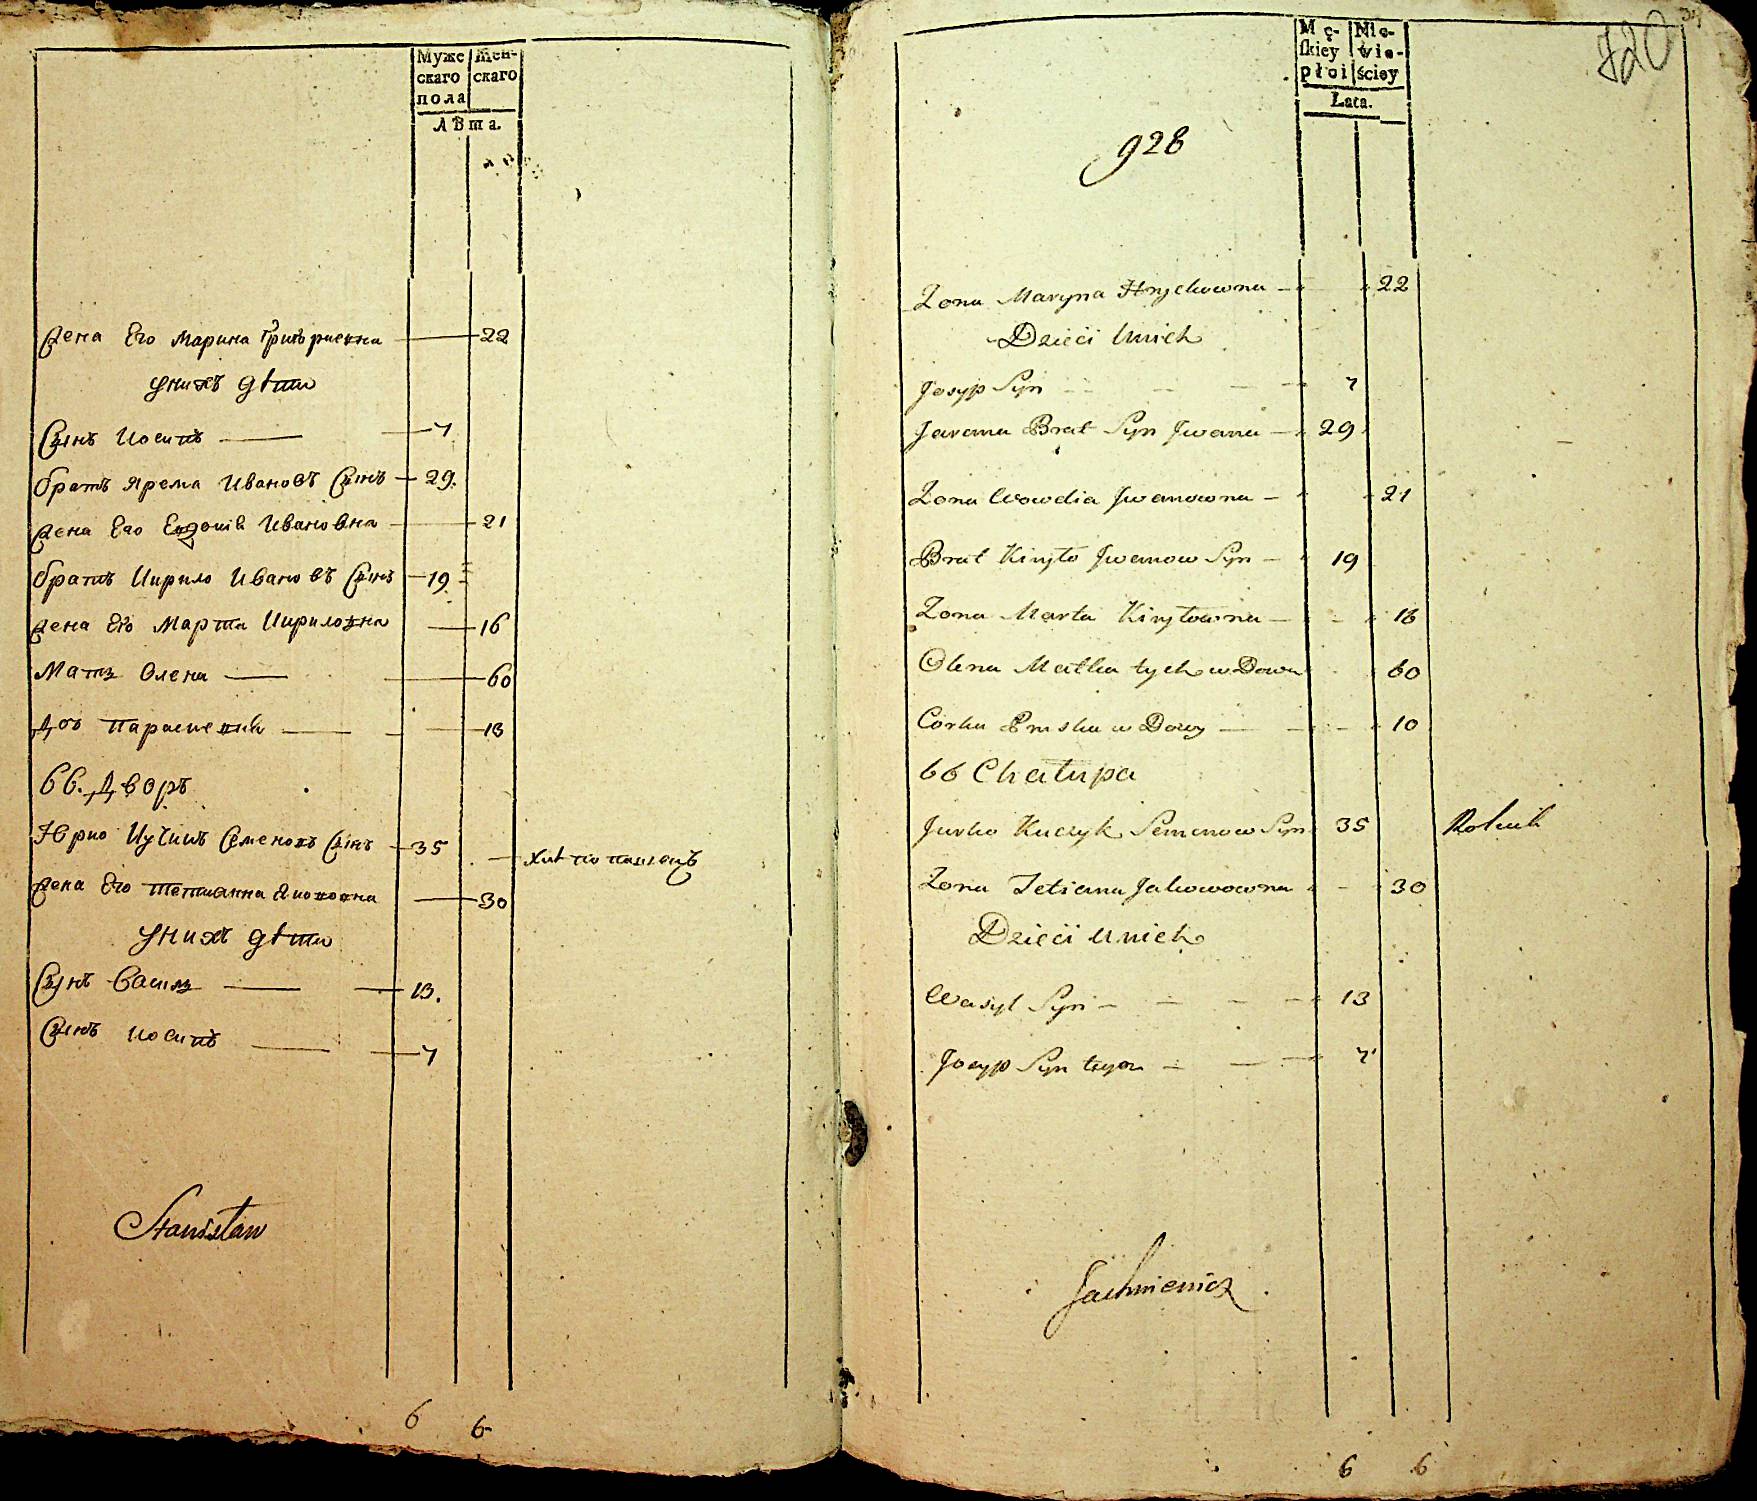 Муже скаго пола
Жен- скаго
Лѣта.
Жена Его Марина Григориевна 22
Унихъ дѣти
Сынъ Иосипъ 7
братъ Ярема Ивановъ Сынъ 29.
Жена Его Евдокіѣ Ивановна 21
братъ Кирило Ивановъ Сынъ 19
Жена Его Марта Кириловна 16
Мать Олена 60
Доч 13
66. Дворъ
Юрко Кучикъ Семеновъ Сынъ 35
Жена Его Тетианна Якововна 30
Унихъ дѣти
Сынъ Василь 13.
Сынъ Иосипъ 7
Stanisław
6 6
Mę- skiey płci
Nie- wie- ściey
Lata.
120
928
Zona Maryna Hrychowna 22
Dzieci Unich
Josyp Syn 7
Jarema Brat Syn Jwana 29
Zona Wowdia Jwanowna 21
Brat Kiryło Jwanow Syn 19
Zona Marta Kiryłowna 16
Olena Matka tych wDowa 60
Corka w Dowy 10
66 Chałupa
Jurko Kuczyk Semenow Syn 35 Rolnik
Zona Tetiana Jakowowna 30
Dzieci Unich
Wasyl Syn 13
Josyp Syn 7
Jachniewicz
6 6